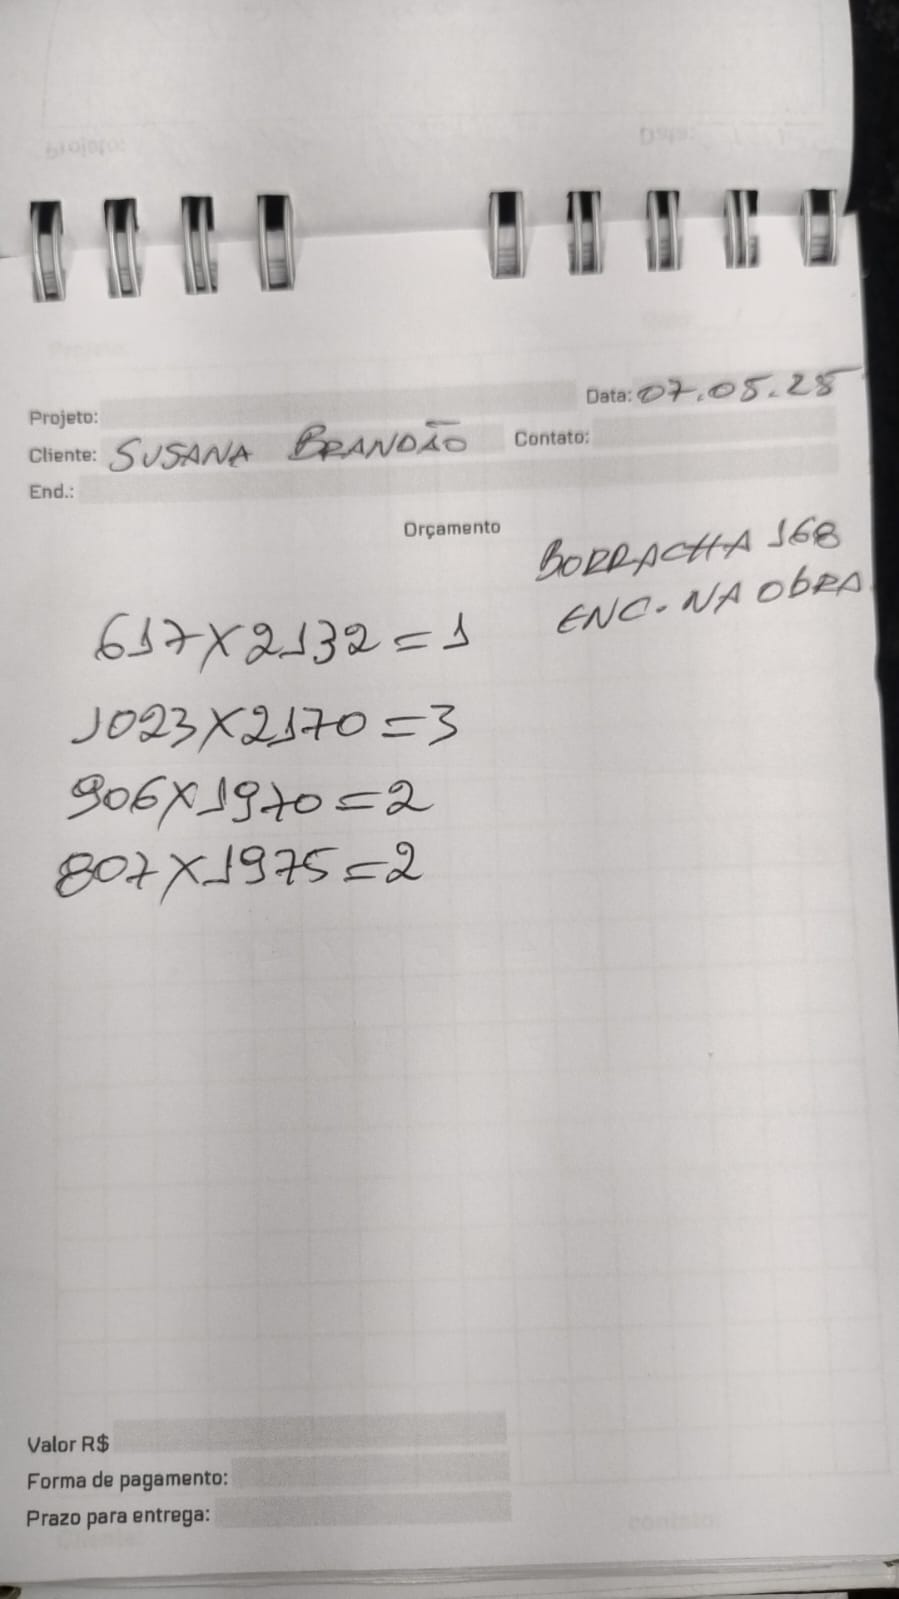 Projeto:
Data: 07.05.25
Cliente: SUSANA BRANDÃO Contato:
End.:
Orçamento
BORRACHA 168
ENC. NA OBRA
617X2132=1
1023X2170=3
906X1970=2
807X1975=2
Valor R$
Forma de pagamento:
Prazo para entrega: